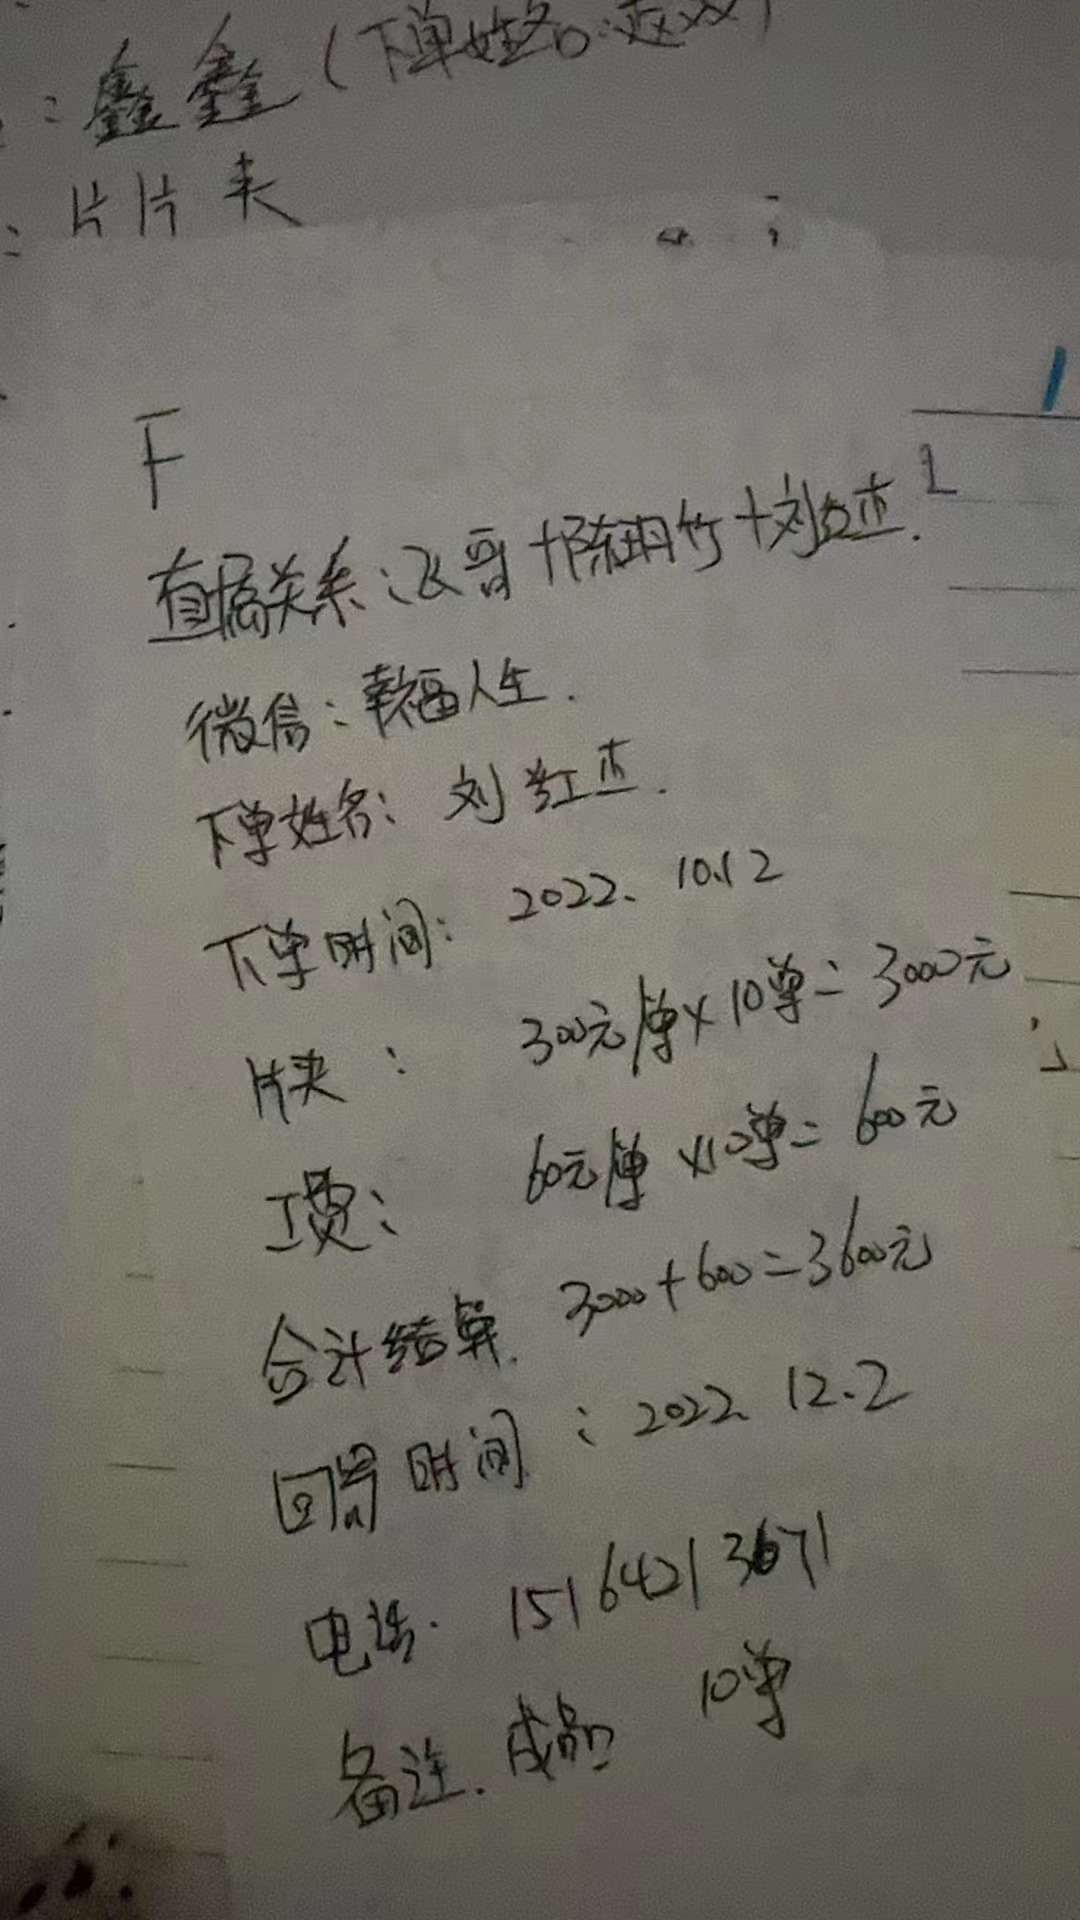 ：鑫鑫（下单姓名：
：片片夹
下
直属关系：飞哥+陈玥竹+刘红杰.
微信：幸福人生.
下单姓名：刘红杰.
下单时间：2022、10.12
片夹：300元/单×10单=3000元
工费：60元/单×10单=600元
合计结算.3000+600=3600元
回寄时间：2022.12.2
电话.15164213671
备注.成品 10单